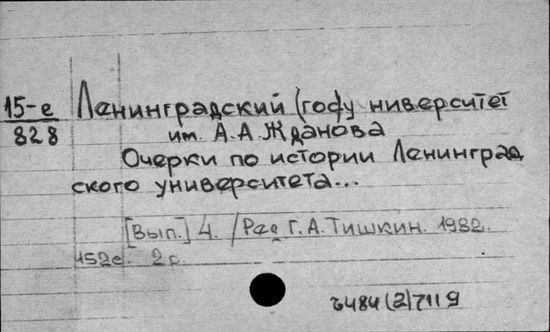 15-е
828
Ленинградский (госуниверситет
им. А.А. Жданова
Очерки по истории Ленинград
ского университета...
[Вып.] 4. / Ред Г.А. Тишкин. 1982.
152с. 2 р.
(2) 7119